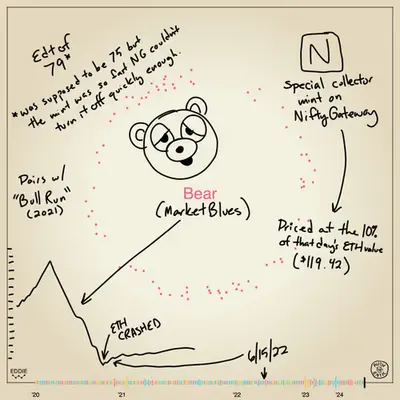 Ed of
79*
*was supposed to be 75 but
the mint was so fast NG couldn't
turn it off quickly enough.
N
Special collector
mint on
NiftyGateway
Pairs w/
"Bull Run"
(2021)
Bear
(Market Blues)
Priced at the 10%
of that day's ETH value
($119.42)
ETH
CRASHED
6/15/22
EDDIE
'20
'21
'22
'23
'24